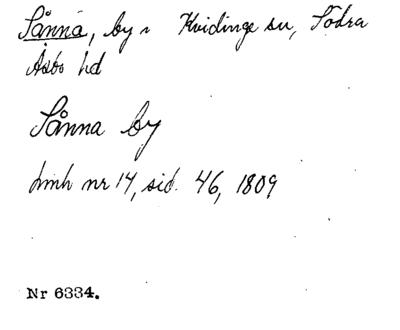 Sånna, by i Kvidinge sn, Södra
Åsbo hd
Sånna by
Lmh nr 14, sid. 46, 1809
Nr 6334.